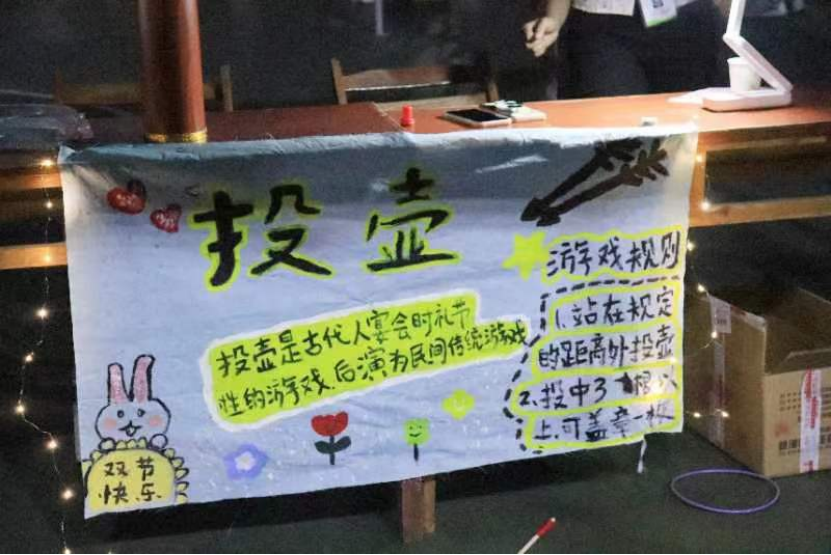 投壶
投壶是古代人宴会时礼节
性的游戏.后演为民间传统游戏
游戏规则
1.站在规定
的距离外投壶
2.投中3根以
上.可盖章一枚
双节
快乐